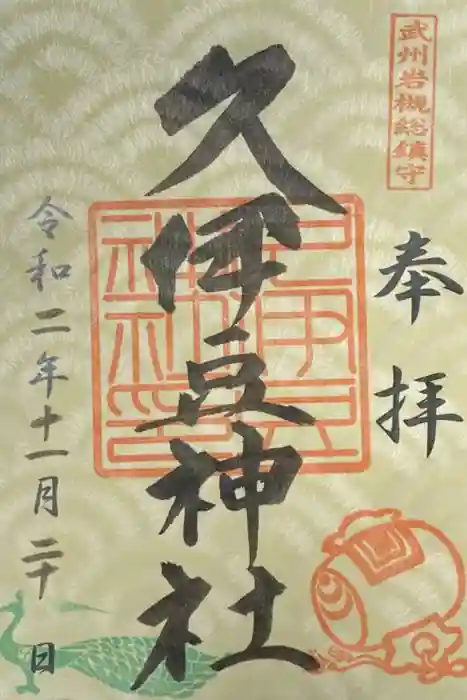 武州岩槻総鎮守
奉拝
久伊豆神社
久伊豆神社印
令和二年十一月二十日